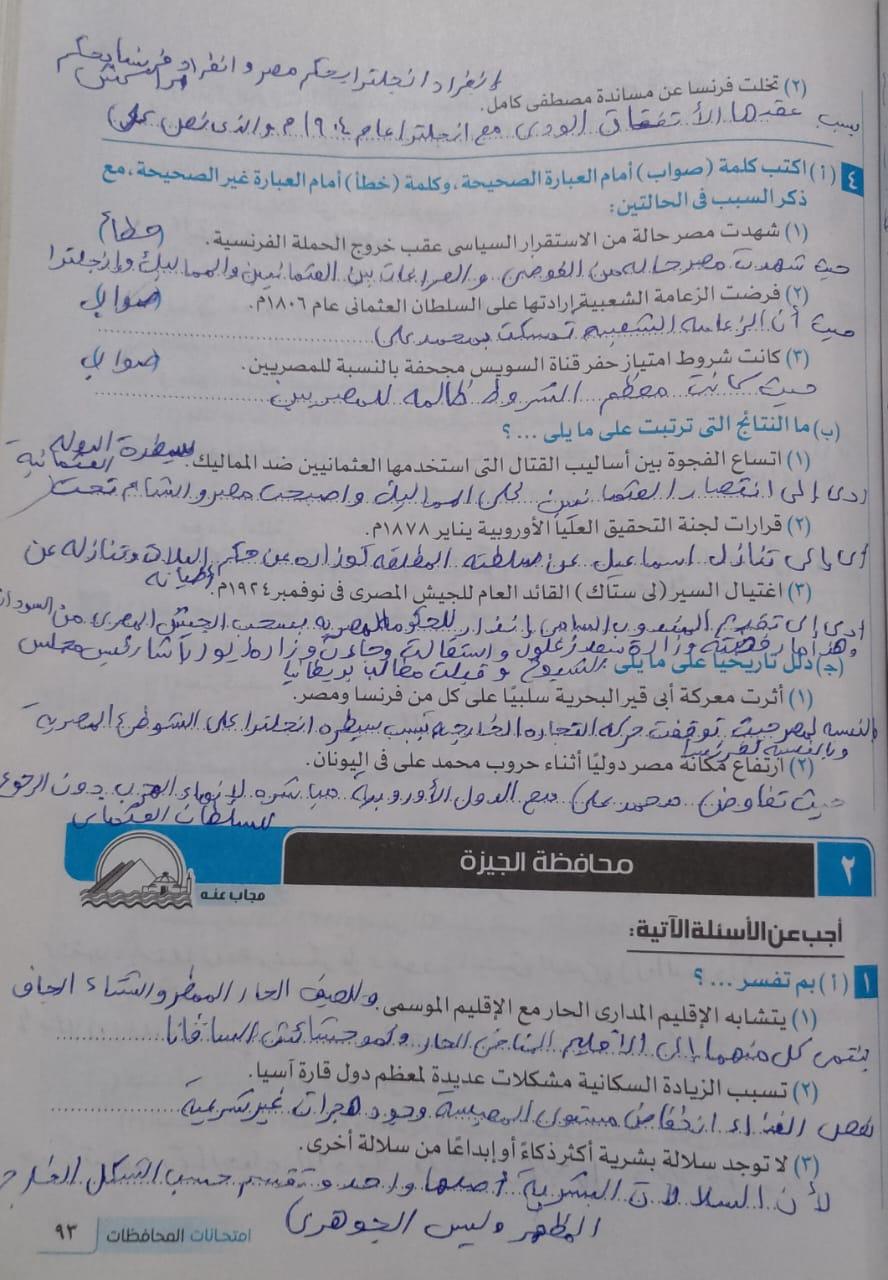 إنفراد انجلترا بحكم مصر وانفراد فرنسا بحكم
مراكش
(٢) تخلت فرنسا عن مساندة مصطفى كامل.
بسبب عقدها الأتفاق الودى مع انجلترا عام ١٩٠٤م والذى نص على
٤ (أ) اكتب كلمة (صواب) أمام العبارة الصحيحة، وكلمة (خطأ) أمام العبارة غير الصحيحة، مع
ذكر السبب فى الحالتين:
(١) شهدت مصر حالة من الاستقرار السياسى عقب خروج الحملة الفرنسية. خطأ
حيث شهدت مصر حاله من الفوضى والصراعات بين العثمانين والمماليك وإنجلترا
(٢) فرضت الزعامة الشعبية إرادتها على السلطان العثمانى عام ١٨٠٦م. صواب
حيث أن الزعامه الشعبيه تمسكت بمحمد على
(٣) كانت شروط امتياز حفر قناة السويس مجحفة بالنسبة للمصريين. صواب
حيث كانت معظم الشروط ظالمه للمصريين
(ب) ما النتائج التى ترتبت على ما يلى ...؟
(١) اتساع الفجوة بين أساليب القتال التى استخدمها العثمانيين ضد المماليك. سيطرة الدوله
العثمانية
ادى إلى انتصار العثمانين على المماليك واصبحت مصر والشام تحت
(٢) قرارات لجنة التحقيق العليا الأوروبية يناير ١٨٧٨م.
ادى إلى تنازل اسماعيل عن سلطته المطلقه كوزاره عن حكم البلاد وتنازله عن
اطيانه
(٣) اغتيال السير (لى ستاك) القائد العام للجيش المصرى فى نوفمبر ١٩٢٤م.
ادى إلى تقديم المندوب السامى إنذار للحكومه المصريه بسحب الجيش المصرى من السودان
وهذا ما رفضته وزارة سعد زغلول واستقالت وجاءت وزاره زيور باشا رئيس مجلس
الشيوخ وقبلت مطالب بريطانيا
(جـ) دلل تاريخياً على ما يلى:
(١) أثرت معركة أبى قير البحرية سلبيًا على كل من فرنسا ومصر.
بالنسبه لمصر حيث توقفت حركه التجاره الخارجيه بسبب سيطره انجلترا على الشوطئ المصرية
وبالنسبة لفرنسا
(٢) ارتفاع مكانة مصر دوليًا أثناء حروب محمد على فى اليونان.
حيث تفاوض محمد على مع الدول الأوروبية مباشره لإنهاء الحرب دون الرجوع
للسلطان العثمانى
٢ محافظة الجيزة
مجاب عنه
أجب عن الأسئلة الآتية:
١ (أ) بم تفسر ...؟
(١) يتشابه الإقليم المدارى الحار مع الإقليم الموسمى. وللصيف الحار الممطر والشتاء الجاف
ينتمى كل منهما إلى الأقليم المناخى الحار ونمو حشائش السافانا
(٢) تسبب الزيادة السكانية مشكلات عديدة لمعظم دول قارة آسيا.
نقص الغذاء انخفاض مستوى المعيشة وجود هجرات غير شرعية
(٣) لا توجد سلالة بشرية أكثر ذكاءً أو إبداعًا من سلالة أخرى.
لأن السلالات البشرية أصلها واحد وتقسم حسب الشكل الخارجى
المظهر وليس الجوهرى)
امتحانات المحافظات ٩٣